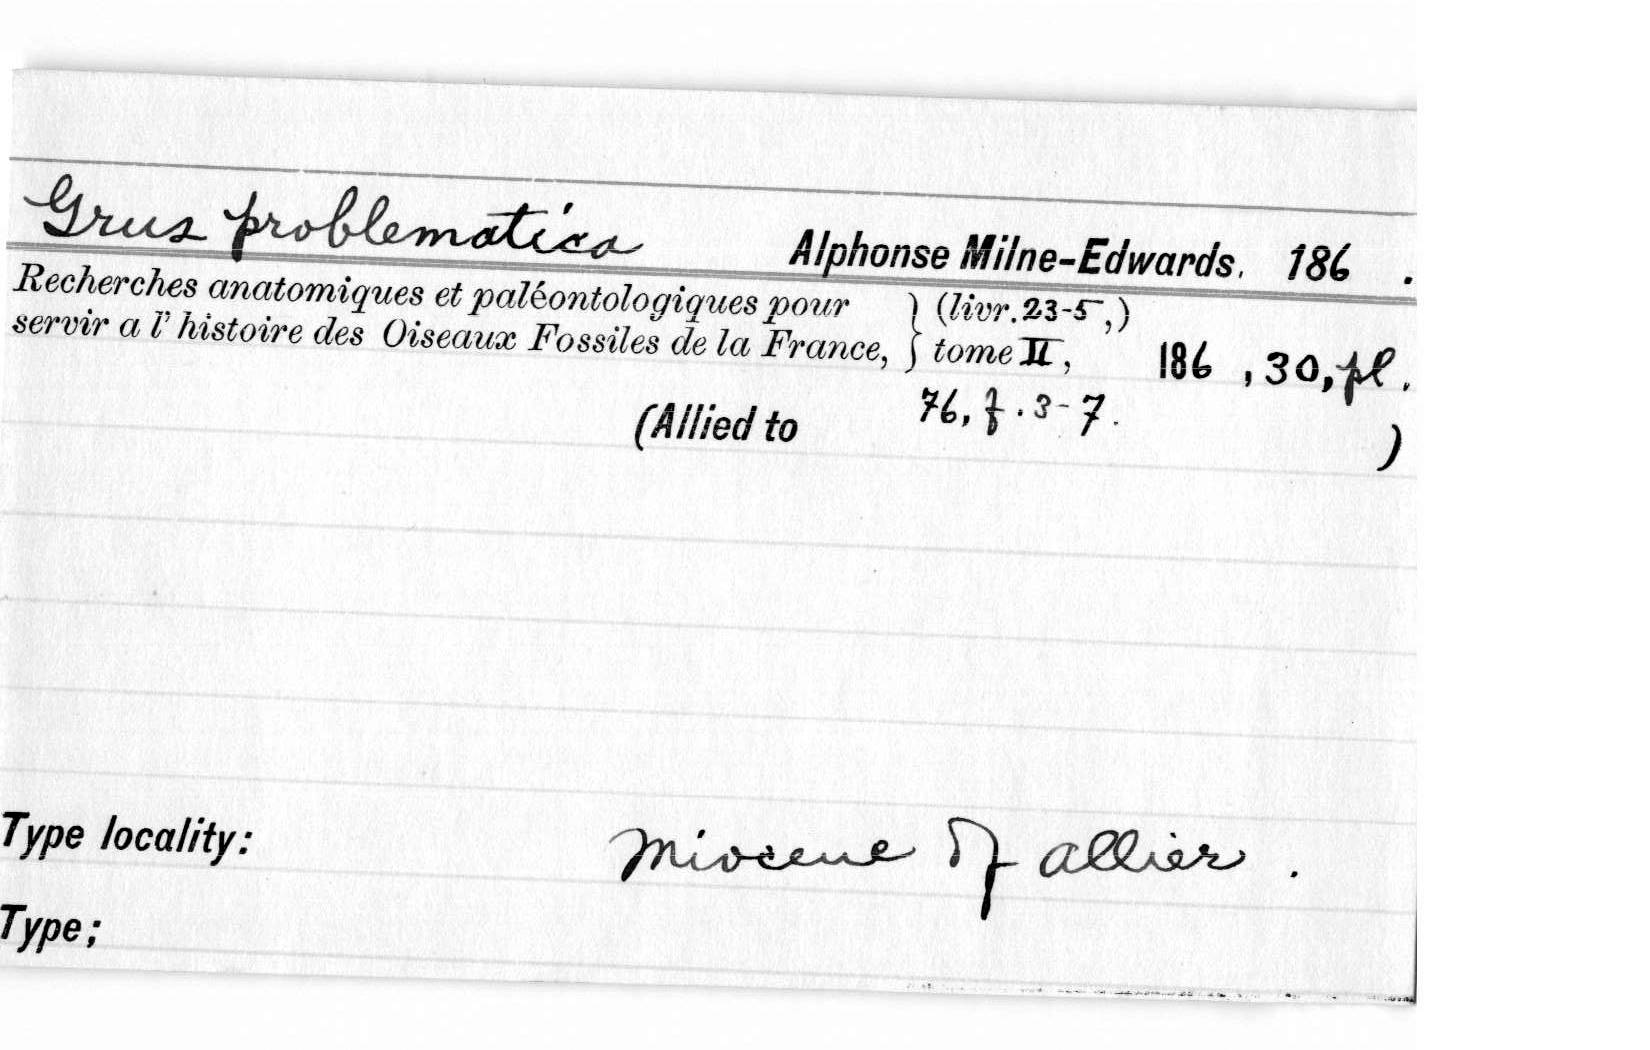 Grus problematica Alphonse Milne-Edwards. 186 .
Recherches anatomiques et paléontologiques pour } (livr. 23-5,)
servir a l' histoire des Oiseaux Fossiles de la France, } tome II, 186 , 30, pl.
(Allied to 76, f. 3-7. )
Type locality: Miocene of Allier .
Type;